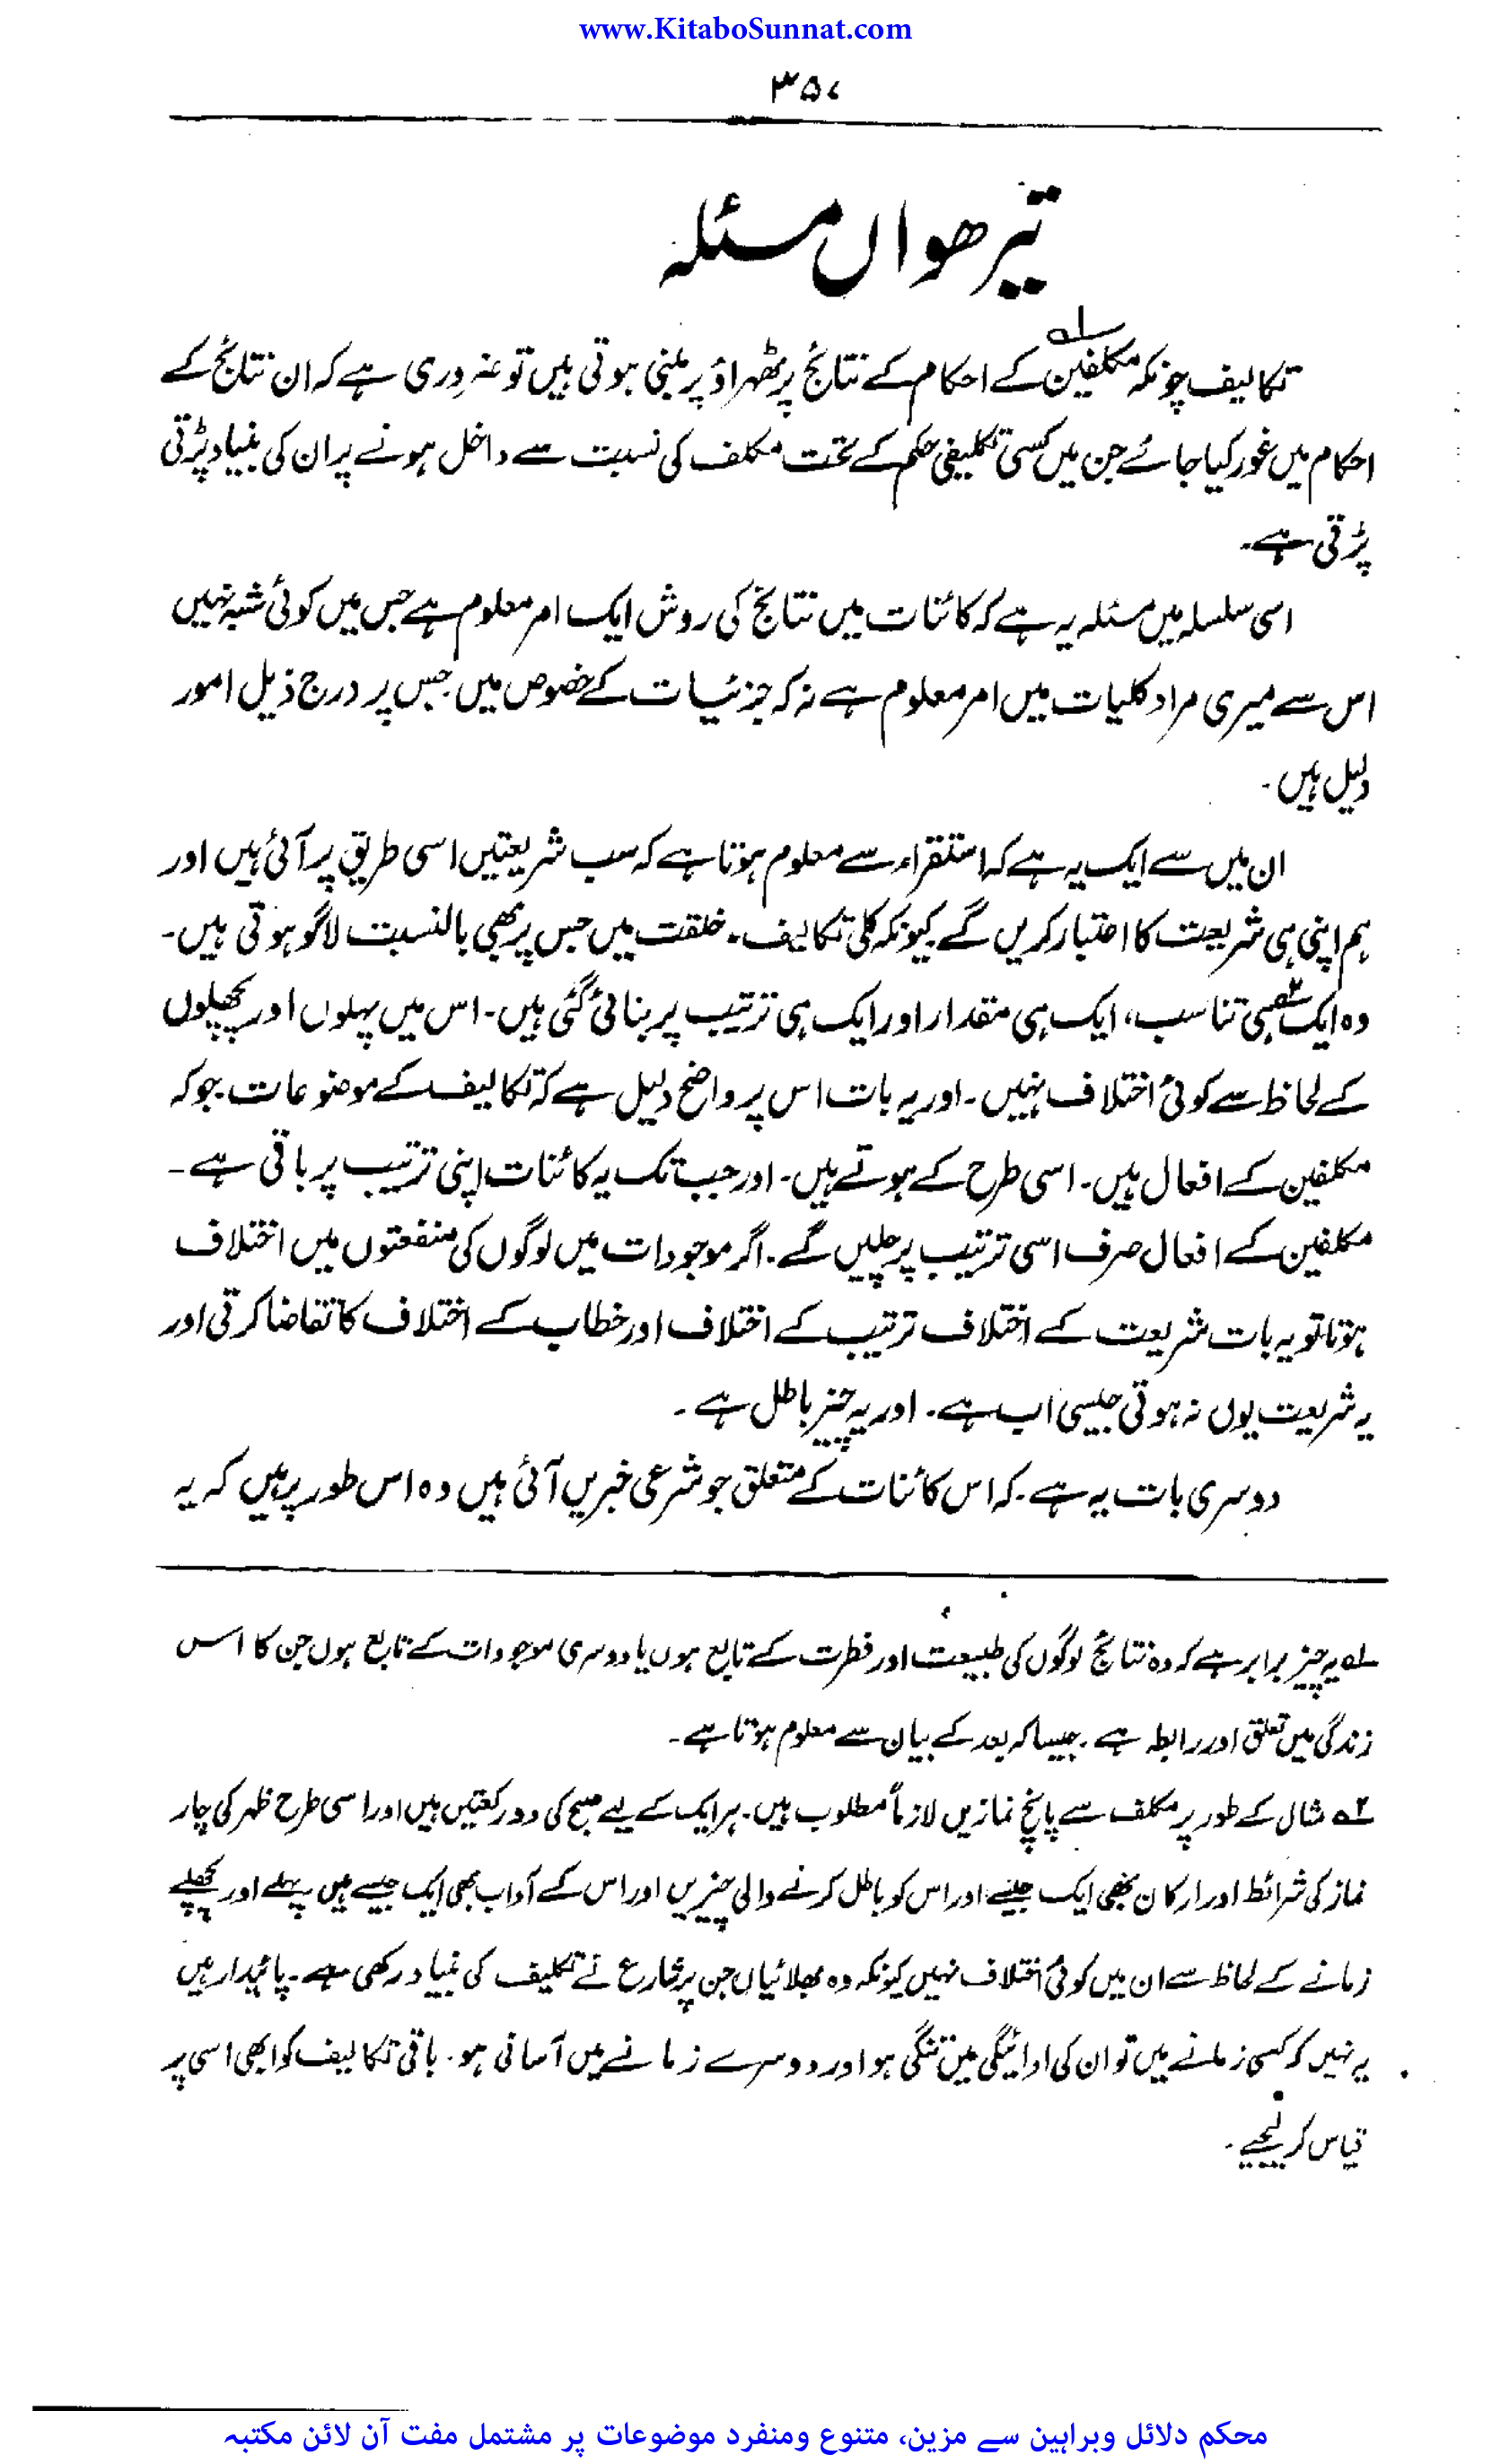 www.KitaboSunnat.com
۳۵۷
تیرھواں مسئلہ
تکالیف چونکہ مکلفین۱؎ کے احکام کے نتائج پر ٹھہراؤ پر مبنی ہوتی ہیں تو ضروری ہے کہ ان نتائج کے
احکام میں غور کیا جائے جن میں کسی تکلیفی حکم کے تحت مکلف کی نسبت سے داخل ہونے پر ان کی بنیاد پڑتی
پڑتی ہے۔
اسی سلسلہ میں مسئلہ یہ ہے کہ کائنات میں نتائج کی روش ایک امر معلوم ہے جس میں کوئی شبہ نہیں
اس سے میری مراد کلیات میں امر معلوم ہے نہ کہ جزئیات کے خصوص میں جس پر درج ذیل امور
دلیل ہیں۔
ان میں سے ایک یہ ہے کہ استقراء سے معلوم ہوتا ہے کہ سب شریعتیں اسی طریق پر آئی ہیں اور
ہم اپنی ہی شریعت کا اعتبار کریں گے کیونکہ کلی تکالیف۔ خلقت میں جس پر بھی بالنسبت لاگو ہوتی ہیں۔
وہ ایک ہی۲؎ تناسب، ایک ہی مقدار اور ایک ہی ترتیب پر بنائی گئی ہیں۔ اس میں پہلوں اور پچھلوں
کے لحاظ سے کوئی اختلاف نہیں۔ اور یہ بات اس پر واضح دلیل ہے کہ تکالیف کے موضوعات جو کہ
مکلفین کے افعال ہیں۔ اسی طرح کے ہوتے ہیں۔ اور جب تک یہ کائنات اپنی ترتیب پر باقی ہے۔
مکلفین کے افعال صرف اسی ترتیب پر چلیں گے۔ اگر موجودات میں لوگوں کی منفعتوں میں اختلاف
ہوتا تو یہ بات شریعت کے اختلاف ترتیب کے اختلاف اور خطاب کے اختلاف کا تقاضا کرتی اور
یہ شریعت یوں نہ ہوتی جیسی اب ہے۔ اور یہ چیز باطل ہے۔
دوسری بات یہ ہے۔ کہ اس کائنات کے متعلق جو شرعی خبریں آئی ہیں وہ اس طور پر ہیں کہ یہ
۱؎ یہ چیز برابر ہے کہ وہ نتائج لوگوں کی طبیعت اور فطرت کے تابع ہوں یا دوسری موجودات کے تابع ہوں جن کا اس
زندگی میں تعلق اور رابطہ ہے۔ جیسا کہ بعد کے بیان سے معلوم ہوتا ہے۔
۲؎ مثال کے طور پر مکلف سے پانچ نمازیں لازماً مطلوب ہیں۔ ہر ایک کے لیے صبح کی دو رکعتیں ہیں اور اسی طرح ظہر کی چار
نماز کی شرائط اور ارکان بھی ایک جیسے اور اس کو باطل کرنے والی چیزیں اور اس کے آداب بھی ایک جیسے ہیں پہلے اور پچھلے
زمانے کے لحاظ سے ان میں کوئی اختلاف نہیں کیونکہ وہ بھلائیاں جن پر شارع نے تکلیف کی بنیاد رکھی ہے۔ پائیدار ہیں
یہ نہیں کہ کسی زمانے میں تو ان کی ادائیگی میں تنگی ہو اور دوسرے زمانے میں آسانی ہو۔ باقی تکالیف کو ابھی اسی پر
قیاس کر لیجیے۔
محکم دلائل وبراہین سے مزین، متنوع ومنفرد موضوعات پر مشتمل مفت آن لائن مکتبہ